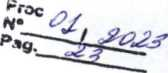 Proc
Nº 01, 2023
Pag. 23